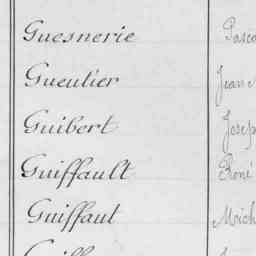 Guesnerie
Gueulier Jeann
Guibert Josep
Guiffault René
Guiffaut Mich